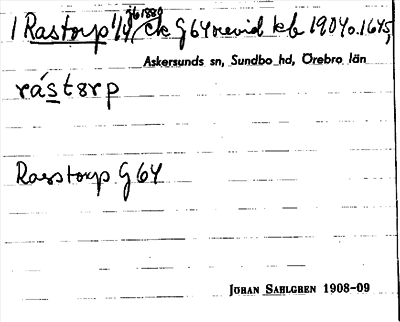 1 Rastorp 1/4 ck G 64 revid kb 1904 o. 1645,
Askersunds sn, Sundbo hd, Örebro län
råstorp
Rasstorp G 64
JOHAN SAHLGREN 1908-09